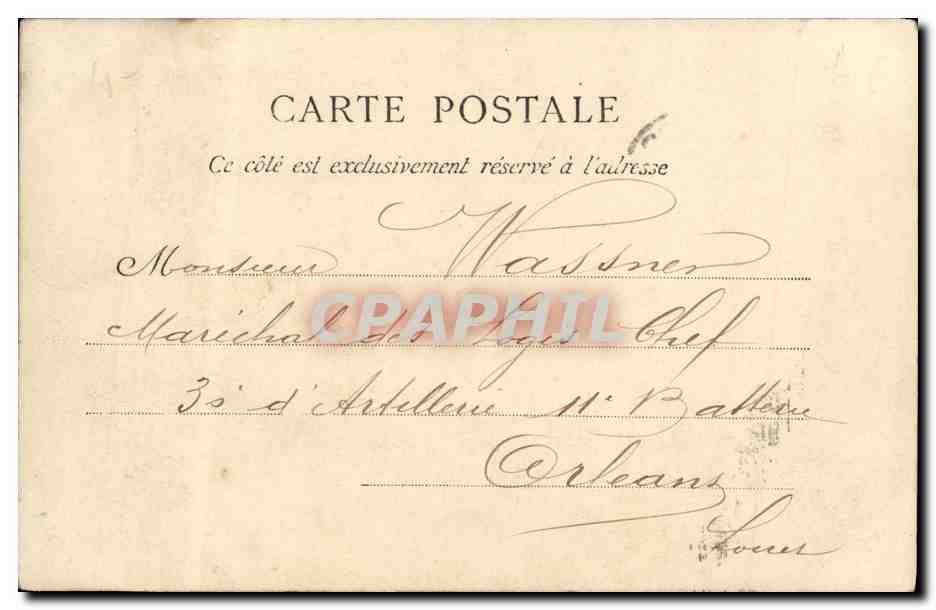 CARTE POSTALE
Ce côté est exclusivement réservé à l'adresse
Monsieur Wassner
CPAPHIL
Maréchal des Logis Chef
3s d'Artillerie 11e Batterie
Orleans
Loiret